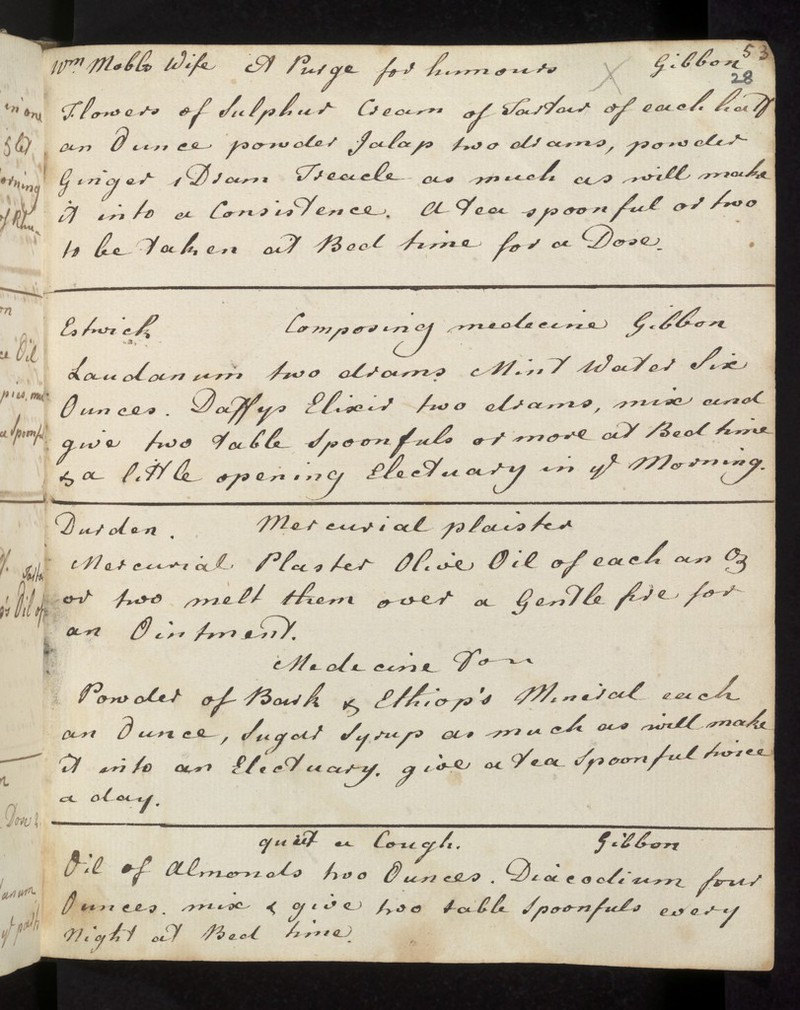 53
Wm Mobbs Wife A Purge for humours X Gibbon
28
Flowers of Sulphur Cream of Tartar of each half
an Ounce powder Jalap two drams, powder
Ginger 1 Dram Treacle as much as will make
it into a Consistence. A tea spoonful or two
to be taken at Bed time for a Dose.
Estwick Composing medecine Gibbon
Laudanum two drams Mint Water Six
Ounces. Daffys Elixir two drams, mix and
give two table spoonfuls or more at Bed time
& a little opening Electuary in ye Morning.
Durden. Mercurial plaister
Mercurial Plaster Olive Oil of each an Oz
or two melt them over a Gentle fire for
an Ointment.
Medecine
Powder of Bark & Ethiop's Mineral each
an Ounce, Sugar Syrup as much as will make
it into an Electuary. give a tea Spoonful twice
a day.
quiet a Cough. Gibbon
Oil of Almonds two Ounces. Diacodium four
Ounces. mix & give two table Spoonfuls every
Night at Bed time.